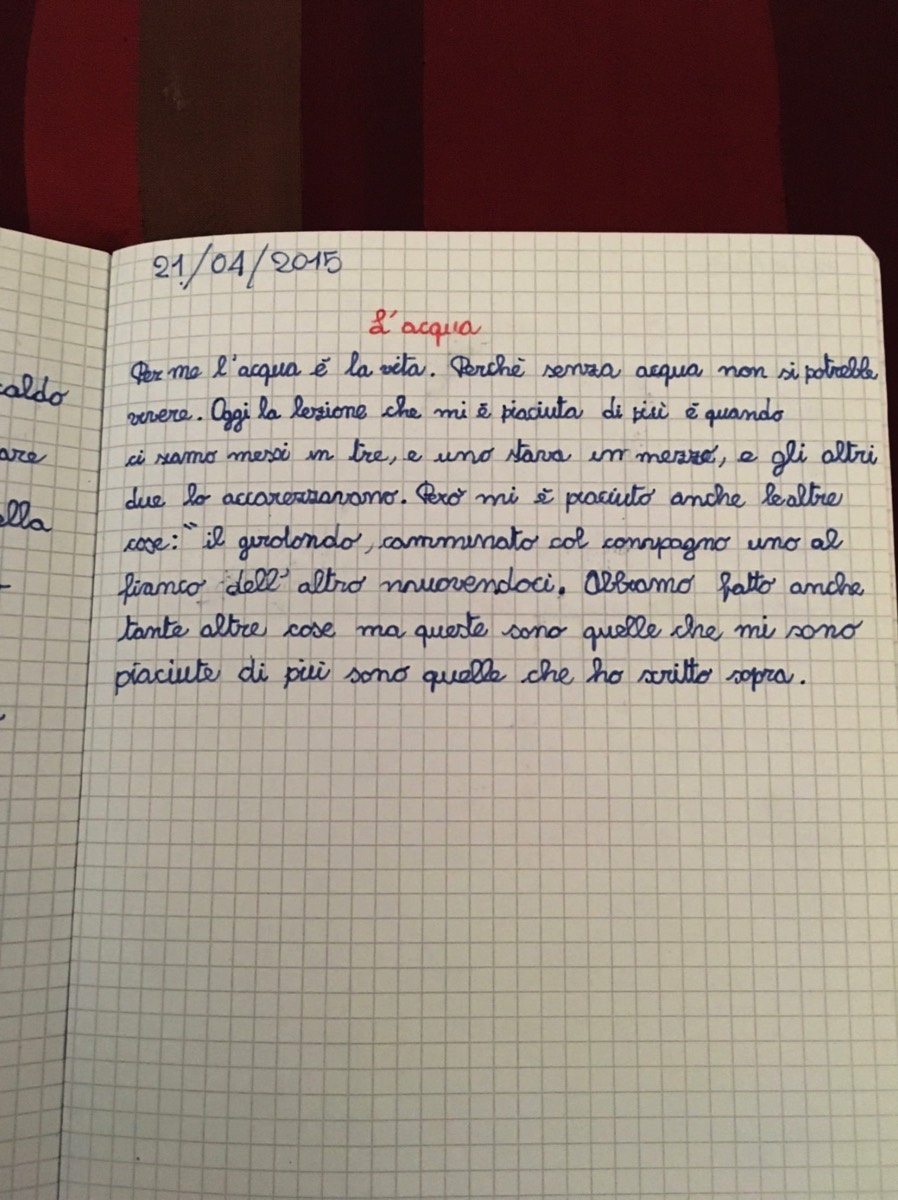 21/04/2015
L'acqua
Per me l'acqua è la vita. Perchè senza acqua non si potrebbe
vivere. Oggi la lezione che mi è piaciuta di più è quando
ci siamo messi in tre, e uno stava in mezzo, e gli altri
due lo accarezzavamo. Però mi è piaciuto anche le altre
cose: " il girotondo, camminato col compagno uno al
fianco dell'altro muovendoci. Abbiamo fatto anche
tante altre cose ma queste sono quelle che mi sono
piaciute di più sono quelle che ho scritto sopra.
caldo
are
ella